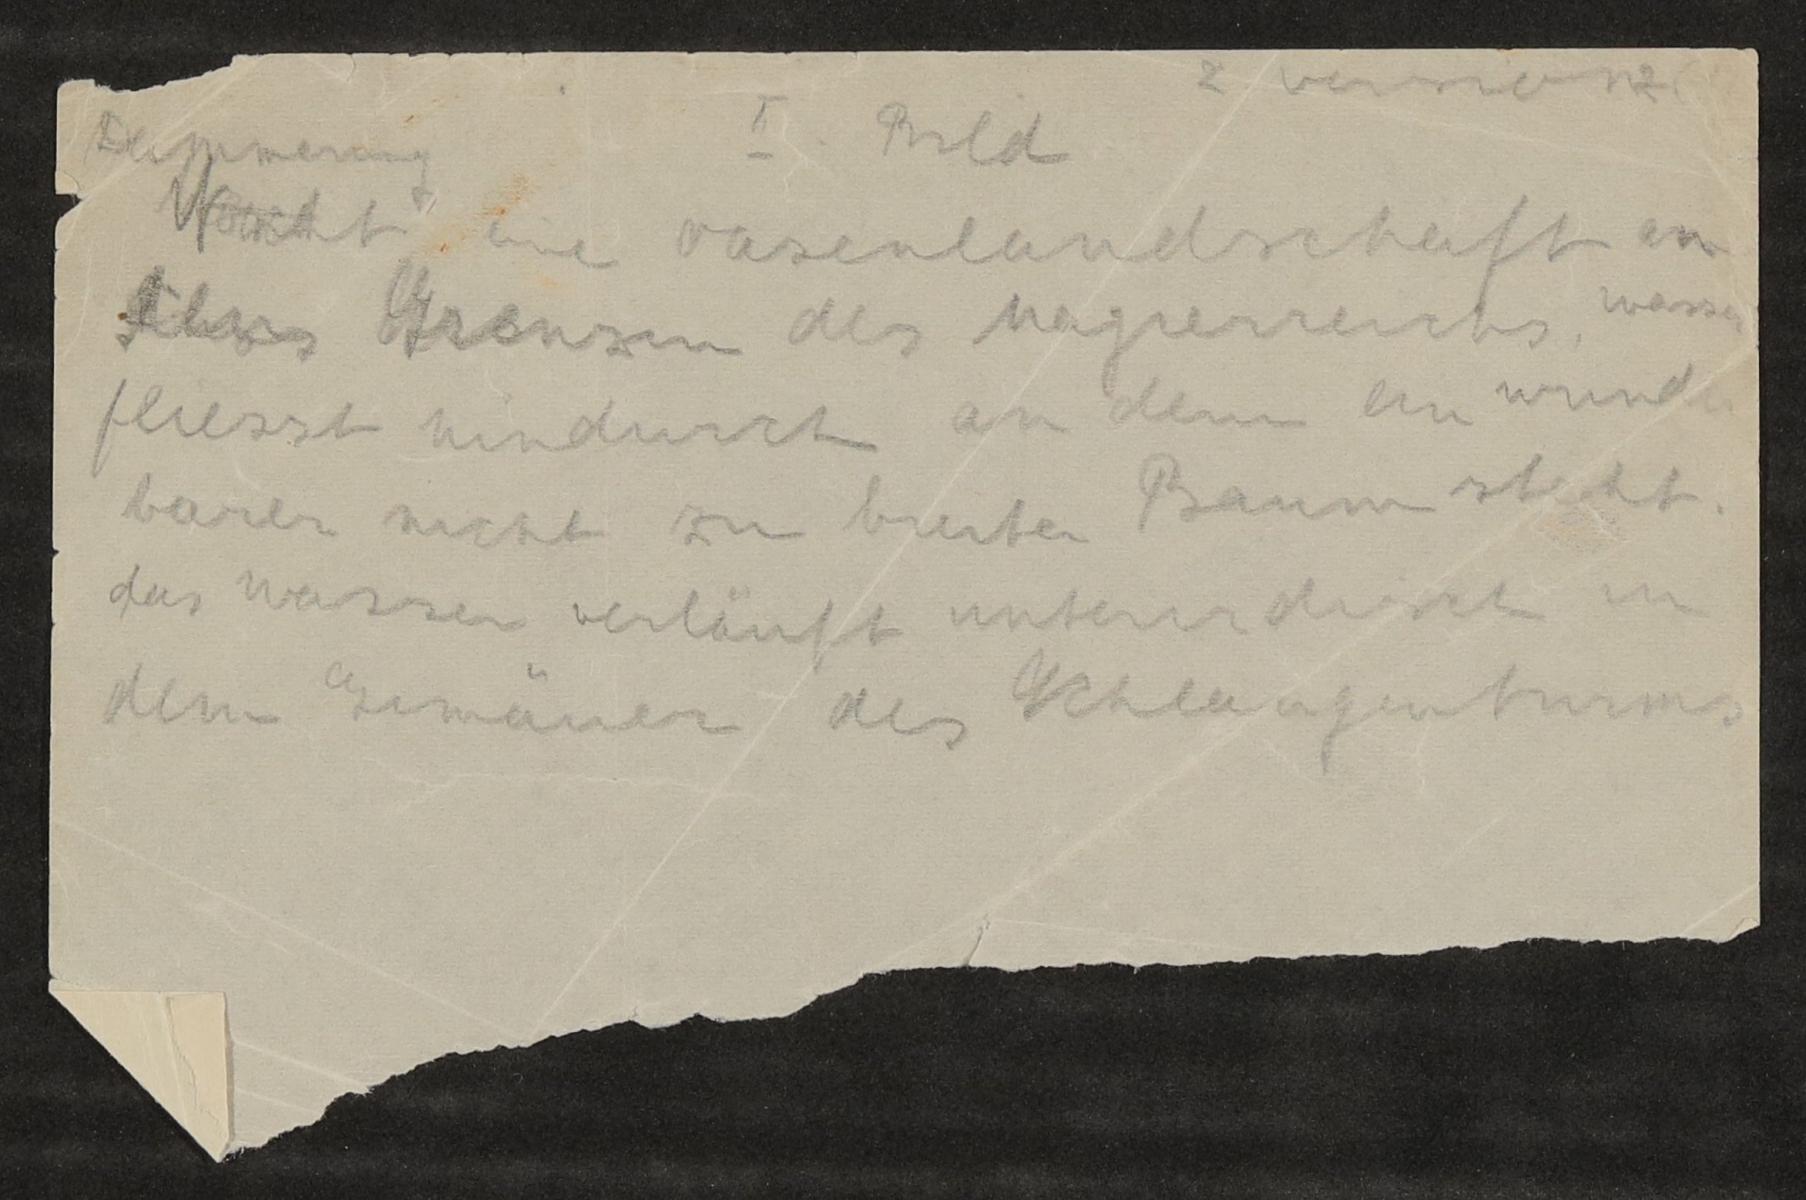 2 version
II. Bild
Dämmerung
Nacht eine oasenlandschaft an
Grenzen des magierreichs, wasser
fliesst hindurch an dem ein wunder
barer nicht zu breiter Baum steht.
das wasser verläuft unterirdisch in
dem Gemäuer des Schlangenturms